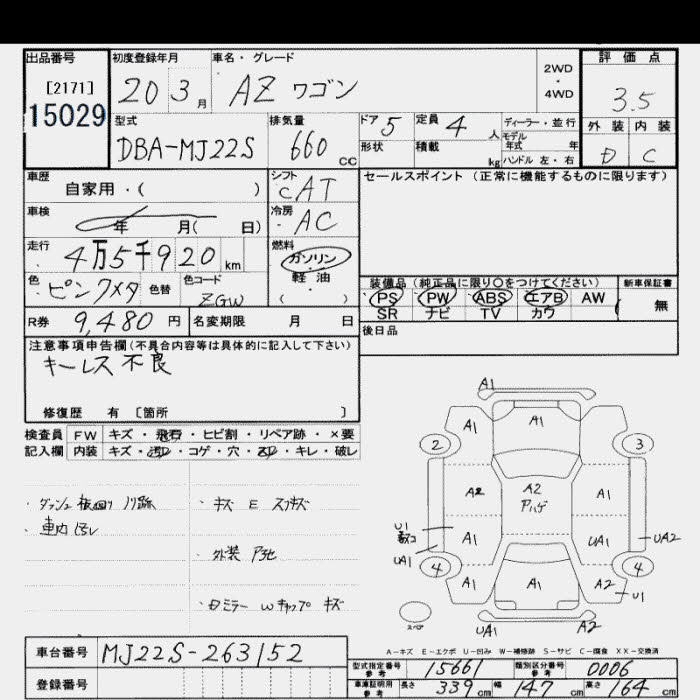 出品番号 初度登録年月 車名・グレード 2WD・4WD 評価点
[2171] 20 3月 AZ ワゴン 3.5
15029 型式 排気量 ドア 5 定員 4人 ディーラー・並行 外装 内装
DBA-MJ22S 660cc 形状 積載 kg モデル年式 年 ハンドル 左・右 D C
車歴 自家用・( ) シフト CAT セールスポイント(正常に機能するものに限ります)
車検 年 月( 日) 冷房 AC
走行 4万5千920km 燃料 ガソリン・軽油・( )
色 ピンクメタ 色替 色コード ZGW 装備品(純正品に限り○をつけてください) 新車保証書
PS PW ABS エアB AW 無
SR ナビ TV カワ
R券 9,480円 名変期限 月 日 後日品
注意事項申告欄(不具合内容等は具体的に記入して下さい)
キーレス不良
修復歴 有 [箇所 ]
検査員 FW キズ・飛石・ヒビ割・リペア跡・×要
記入欄 内装 キズ・汚れ・コゲ・穴・スレ・キレ・破レ
・キズ E スリキズ
・車内汚レ
・外装
・Dミラー Wキャップ キズ
A1
A1 A1
2 3
A2 A2 A1
U1
A1 UA1 UA2
UA1
4 4
A1 A1 A2 U1
スペア UA1 A2
A-キズ E-エクボ U-凹み W-補修跡 S-サビ C-腐食 XX-交換済
車台番号 MJ22S-263152 型式指定番号 参考 15661 類別区分番号 参考 0006
登録番号 車庫証明用 参考 長さ 339cm 幅 147cm 高さ 164cm